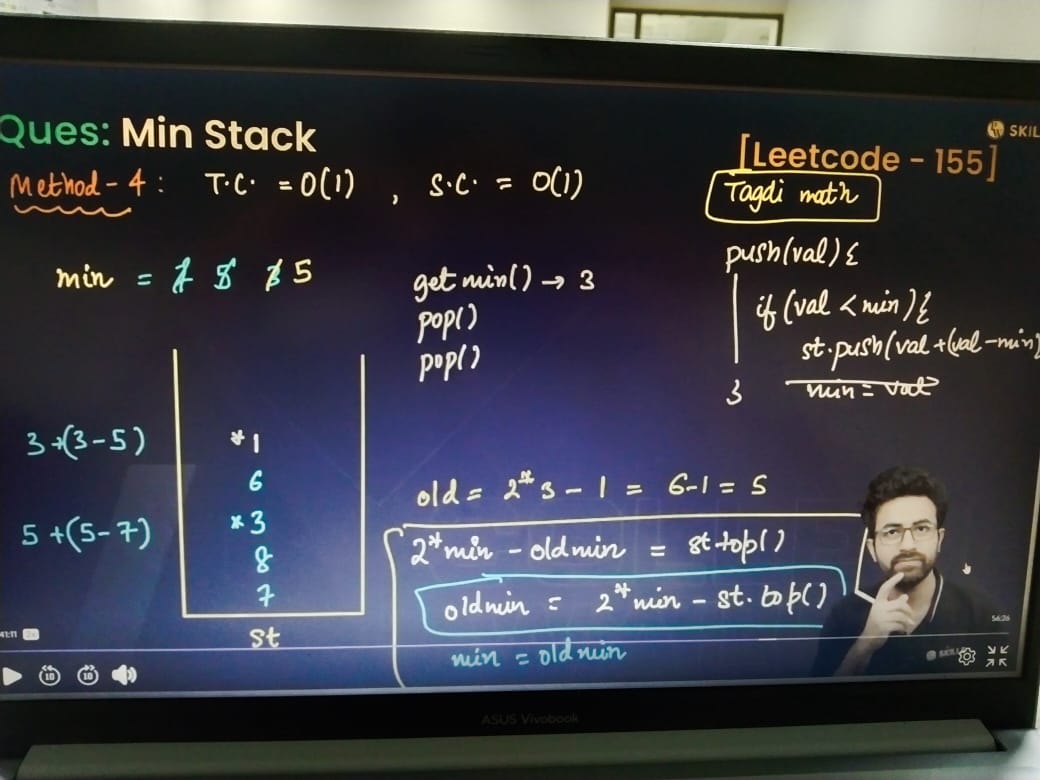 Ques: Min Stack
SKIL
[Leetcode - 155]
Method - 4 : T.C. = O(1) , S.C. = O(1)
Tagdi math
min = 7 5 3 5
getmin() → 3
pop()
pop()
push(val) {
if (val < min) {
st.push(val + (val - min)
min = val
}
3 + (3 - 5)
5 + (5 - 7)
* 1
6
* 3
8
7
st
old = 2 * 3 - 1 = 6 - 1 = 5
2 * min - oldmin = st.top()
oldmin = 2 * min - st.top()
min = oldmin
41:11 2x
56:26
10 10
ASUS Vivobook